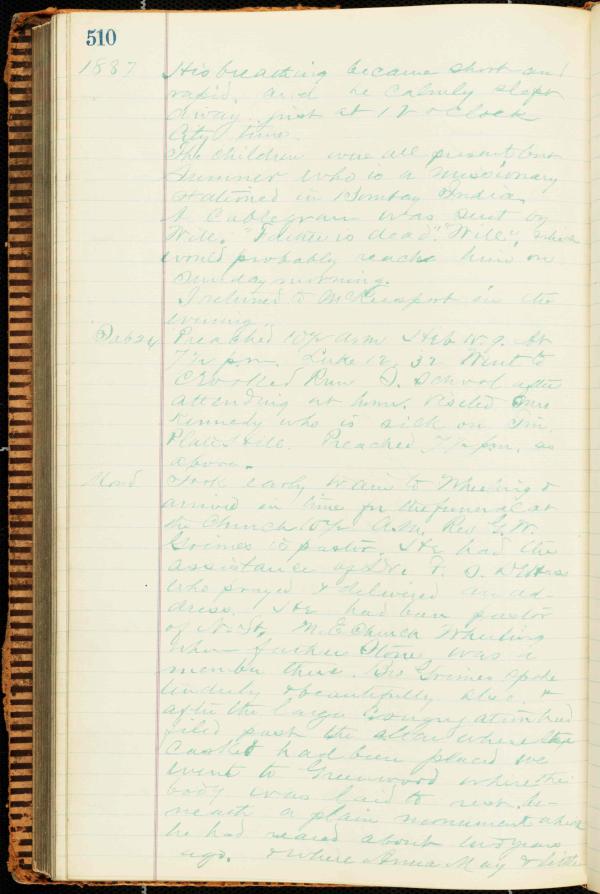 510
1887 His breathing became short and
rapid, and he calmly slept
away just at 12 o clock
City time.
The children were all present but
Sumner who is a missionary
stationed in Bombay India.
A Cablegram was sent by
Will. "Father is dead." "Will", which
would probably reach him on
Sunday morning.
I returned to McKeesport in the
evening
Preached 10½ a.m. Heb
7½ p.m. Luke 12, 32 Went to
Crooked Run S. School after
attending at home. Visited Mrs
Kennedy who is sick on
Hill. Preached 7½ p.m. as
above.
Mond Took early train to Wheeling &
arrived in time for the funeral at
the Church 10½ A.M. Rev G. W.
Grimes is pastor. He had the
assistance of
who prayed & delivered an ad-
dress. He had been pastor
of M.E. Church Wheeling
when father Stone was a
member there. Bro Grimes spoke
tenderly & beautifully also. &
after the large Congregation had
filed past the altar where the
Casket had been placed we
went to Greenwood where the
body was laid to rest be-
neath a plain monument which
he had reared about two years
ago. & where Anna May &